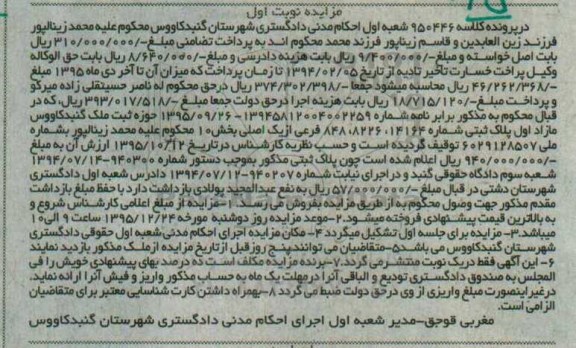 مزایده نوبت اول
درپرونده کلاسه ۹۵۰۴۴۶ شعبه اول احکام مدنی دادگستری شهرستان گنبدکاووس محکوم علیه محمد زینالپور
فرزند زین العابدین و قاسم زیناپور فرزند محمد محکوم اند به پرداخت تضامنی مبلغ-/۳۱۰/۰۰۰/۰۰۰ ریال
بابت اصل خواسته و مبلغ-/۹/۴۰۰/۰۰۰ ریال بابت هزینه دادرسی و مبلغ-/۸/۶۴۰/۰۰۰ ریال بابت حق الوکاله
وکیل پراخت خسارت تأخیر تادیه از تاریخ ۱۳۹۴/۰۲/۰۵ تا زمان پرداخت که میزان آن تا آخر دی ماه ۱۳۹۵ مبلغ
-/۴۶/۲۶۲/۳۶۸ ریال محاسبه میشود جمعا -/۳۷۴/۳۰۲/۳۹۸ ریال درحق محکوم له ناصر حسینقلی زاده میرکو
و پرداخت مبلغ-/۱۸/۷۱۵/۱۲۰ ریال بابت هزینه اجرا درحق دولت جمعا مبلغ -/۳۹۳/۰۱۷/۵۱۸ ریال، که در
قبال محکوم به مذکور برابر نامه شماره ۱۳۹۴۵۸۱۲۰۰۴۰۰۲۲۵۹- ۱۳۹۵/۰۹/۲۶ حوزه ثبت ملک گنبدکاووس
مازاد اول پلاک ثبتی شماره ۱۴۱۶۴، ۸۴۸،۸۲۲۶ فرعی ازیک اصلی بخش۱۰ محکوم علیه محمد زینالپور بشماره
ملی ۶۰۲۹۱۲۸۵۰۷ توقیف گردیده است و حسب نظریه کارشناس درتاریخ ۱۳۹۵/۱۰/۱۲ ارزش آن به مبلغ
-/۹۴۰/۰۰۰/۰۰۰ ریال اعلام شده است چون پلاک ثبتی مذکور بموجب دستور شماره ۹۴۰۳۰۰-۱۳۹۴/۰۷/۱۴
شعبه سوم دادگاه حقوقی گنبد و در اجرای نیابت شماره ۹۴۰۲۰۷-۱۳۹۴/۰۷/۱۲ دادرس شعبه اول دادگستری
شهرستان دشتی در قبال مبلغ-/۵۷/۰۰۰/۰۰۰ ریال به نفع عبدالحمید پولادی بازداشت دارد با حفظ مبلغ بازداشت
مقدم مذکور جهت وصول محکوم به از طریق مزایده بفروش می رسد.۱-مزایده از مبلغ اعلامی کارشناس شروع و
به بالاترین قیمت پیشنهادی فروخته میشود.۲-موعد مزایده روز دوشنبه مورخه ۱۳۹۵/۱۲/۲۴ ساعت ۹ الی۱۰
میباشد.۳- مزایده برای جلسه اول تشکیل میگردد ۴- مکان مزایده اجرای احکام مدنی شعبه اول حقوقی دادگستری
شهرستان گنبدکاووس می باشد۵-متقاضیان می توانند پنج روزقبل ازتاریخ مزایده ازملک مذکور بازدید نمایند
۶- این آگهی فقط دریک نوبت منتشر می گردد.۷-برنده مزایده مکلف است که درصد بهای پیشنهادی خویش را فی
المجلس به صندوق دادگستری تودیع و الباقی آنرا درمهلت یک ماه به حساب مذکور واریز و فیش آنرا ارائه نماید.
درغیر اینصورت مبلغ واریزی از وی درحق دولت ضبط می گردد ۸-بهمراه داشتن کارت شناسایی معتبر برای متقاضیان
الزامی است.
مغربی قوجق-مدیر شعبه اول اجرای احکام مدنی دادگستری شهرستان گنبدکاووس